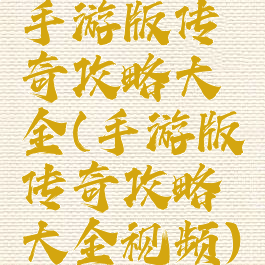 手游版传
奇攻略大
全(手游版
传奇攻略
大全视频)